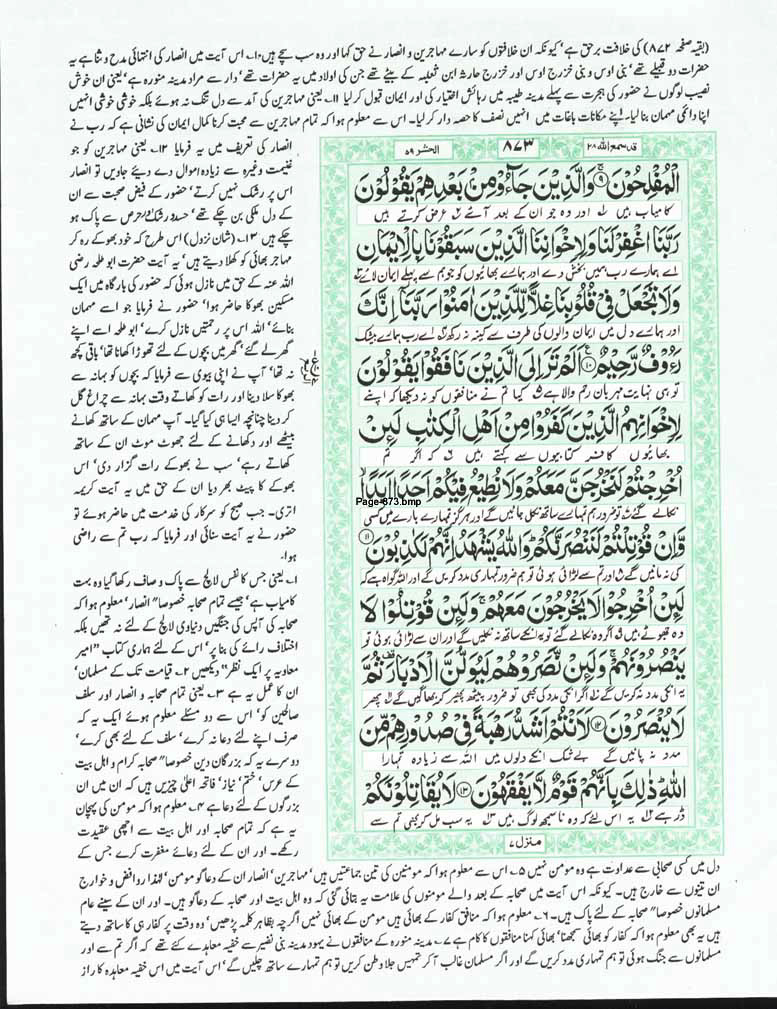 (بقیہ صفحہ ۸۷۲) کی خلافت برحق ہے' کیونکہ ان خلافتوں کو سارے مہاجرین و انصار نے حق کہا اور وہ سب سچے ہیں ۱۰۔ اس آیت میں انصار کی انتہائی مدح و ثنا ہے یہ
حضرات دو قبیلے تھے' بنی اوس و بنی خزرج اوس اور خزرج حارثہ ابن ثعلبہ کے بیٹے تھے جن کی اولاد میں یہ حضرات تھے' دار سے مراد مدینہ منورہ ہے' یعنی ان خوش
نصیب لوگوں نے حضور کی ہجرت سے پہلے مدینہ طیبہ میں رہائش اختیار کی اور ایمان قبول کر لیا ۱۱۔ یعنی مہاجرین کی آمد سے دل تنگ نہ ہوئے بلکہ خوشی خوشی انہیں
اپنا دائمی مہمان بنا لیا۔ اپنے مکانات باغات میں انہیں نصف کا حصہ دار کر لیا۔ اس سے معلوم ہوا کہ تمام مہاجرین سے محبت کرنا کمال ایمان کی نشانی ہے کہ رب نے
قد سمع اللہ ۲۸
۸۷۳
الحشر ۵۹
الْمُفْلِحُونَ ۹ وَالَّذِينَ جَاءُو مِنْ بَعْدِهِمْ يَقُولُونَ
کامیاب ہیں اور وہ جو ان کے بعد آئے عرض کرتے ہیں
رَبَّنَا اغْفِرْ لَنَا وَلِإِخْوَانِنَا الَّذِينَ سَبَقُونَا بِالْإِيمَانِ
اے ہمارے رب ہمیں بخش دے اور ہمارے بھائیوں کو جو ہم سے پہلے ایمان لائے
وَلَا تَجْعَلْ فِي قُلُوبِنَا غِلًّا لِلَّذِينَ آمَنُوا رَبَّنَا إِنَّكَ
اور ہمارے دل میں ایمان والوں کی طرف سے کینہ نہ رکھ اے رب ہمارے بیشک
رَءُوفٌ رَحِيمٌ ۱۰ أَلَمْ تَرَ إِلَى الَّذِينَ نَافَقُوا يَقُولُونَ
تو ہی نہایت مہربان رحم والا ہے کیا تم نے منافقوں کو نہ دیکھا کہ اپنے
لِإِخْوَانِهِمُ الَّذِينَ كَفَرُوا مِنْ أَهْلِ الْكِتَابِ لَئِنْ
بھائیوں کافر کتابیوں سے کہتے ہیں کہ اگر تم
أُخْرِجْتُمْ لَنَخْرُجَنَّ مَعَكُمْ وَلَا نُطِيعُ فِيكُمْ أَحَدًا أَبَدًا
نکالے گئے تو ضرور ہم تمہارے ساتھ نکل جائیں گے اور ہرگز تمہارے بارے میں کسی
Page-873.bmp
وَإِنْ قُوتِلْتُمْ لَنَنْصُرَنَّكُمْ وَاللَّهُ يَشْهَدُ إِنَّهُمْ لَكَاذِبُونَ ۱۱
کی نہ مانیں گے اور تم سے لڑائی ہوئی تو ہم ضرور تمہاری مدد کریں گے اور اللہ گواہ ہے کہ
لَئِنْ أُخْرِجُوا لَا يَخْرُجُونَ مَعَهُمْ وَلَئِنْ قُوتِلُوا لَا
وہ جھوٹے ہیں اگر وہ نکالے گئے تو یہ انکے ساتھ نہ نکلیں گے اور ان سے لڑائی ہوئی تو
يَنْصُرُونَهُمْ وَلَئِنْ نَصَرُوهُمْ لَيُوَلُّنَّ الْأَدْبَارَ ثُمَّ
یہ انکی مدد نہ کریں گے اگر انکی مدد کی بھی تو ضرور پیٹھ پھیر کر بھاگیں گے پھر
لَا يُنْصَرُونَ ۱۲ لَأَنْتُمْ أَشَدُّ رَهْبَةً فِي صُدُورِهِمْ مِنَ
مدد نہ پائیں گے بے شک انکے دلوں میں اللہ سے زیادہ تمہارا
اللَّهِ ذَلِكَ بِأَنَّهُمْ قَوْمٌ لَا يَفْقَهُونَ ۱۳ لَا يُقَاتِلُونَكُمْ
ڈر ہے یہ اس لئے کہ وہ نا سمجھ لوگ ہیں یہ سب مل کر بھی تم سے
منزل ۷
انصار کی تعریف میں یہ فرمایا ۱۲۔ یعنی مہاجرین کو جو
غنیمت وغیرہ سے زیادہ اموال دے دیئے جاویں تو انصار
اس پر رشک نہیں کرتے' حضور کے فیض صحبت سے ان
کے دل ملکی بن چکے تھے' حسد و رشک و حرص سے پاک ہو
چکے ہیں ۱۳۔ (شان نزول) اس طرح کہ خود بھوکے رہ کر
مہاجر بھائی کو کھلا دیتے ہیں' یہ آیت حضرت ابو طلحہ رضی
اللہ عنہ کے حق میں نازل ہوئی کہ حضور کی بارگاہ میں ایک
مسکین بھوکا حاضر ہوا' حضور نے فرمایا جو اسے مہمان
بنائے' اللہ اس پر رحمتیں نازل کرے' ابو طلحہ اسے اپنے
گھر لے گئے' گھر میں بچوں کے لئے تھوڑا کھانا تھا' باقی کچھ
نہ تھا' آپ نے اپنی بیوی سے فرمایا کہ بچوں کو بہانہ سے
بھوکا سلا دینا اور رات کو کھاتے وقت بہانہ سے چراغ گل
کر دینا چنانچہ ایسا ہی کیا گیا۔ آپ مہمان کے ساتھ کھانے
بیٹھے اور دکھانے کے لئے جھوٹ موٹ ان کے ساتھ
کھاتے رہے' سب نے بھوکے رات گزار دی' اس
بھوکے کا پیٹ بھر دیا ان کے حق میں یہ آیت کریمہ
اتری۔ جب صبح کو سرکار کی خدمت میں حاضر ہوئے تو
حضور نے یہ آیت سنائی اور فرمایا کہ رب تم سے راضی
ہوا۔
۱۔ یعنی جس کا نفس لالچ سے پاک و صاف رکھا گیا وہ بہت
کامیاب ہے' جیسے تمام صحابہ خصوصا" انصار' معلوم ہوا کہ
صحابہ کی آپس کی جنگیں دنیاوی لالچ کے لئے نہ تھیں بلکہ
اختلاف رائے کی بنا پر' اس کے لئے ہماری کتاب "امیر
معاویہ پر ایک نظر" دیکھیں ۲۔ قیامت تک کے مسلمان'
ان کا عمل یہ ہے ۳۔ یعنی تمام صحابہ و انصار اور سلف
صالحین کو' اس سے دو مسئلے معلوم ہوئے ایک یہ کہ
صرف اپنے لئے دعا نہ کرے' سلف کے لئے بھی کرے'
دوسرے یہ کہ بزرگان دین خصوصا" صحابہ کرام و اہل بیت
کے عرس' ختم' نیاز' فاتحہ اعلیٰ چیزیں ہیں کہ ان میں ان
بزرگوں کے لئے دعا ہے ۴۔ معلوم ہوا کہ مومن کی پہچان
یہ ہے کہ تمام صحابہ اور اہل بیت سے اچھی عقیدت
رکھے۔ اور ان کے لئے دعائے مغفرت کرے جس کے
دل میں کسی صحابی سے عداوت ہے وہ مومن نہیں ۵۔ اس سے معلوم ہوا کہ مومنین کی تین جماعتیں ہیں' مہاجرین' انصار ان کے دعاگو مومن' لہٰذا روافض و خوارج
ان تینوں سے خارج ہیں۔ کیونکہ اس آیت میں صحابہ کے بعد والے مومنوں کی علامت یہ بتائی گئی کہ وہ اہل بیت اور صحابہ کے دعاگو ہیں۔ اور ان کے سینے عام
مسلمانوں خصوصا" صحابہ کے لئے پاک ہیں۔ ۶۔ معلوم ہوا کہ منافق کفار کے بھائی ہیں مومن کے بھائی نہیں اگرچہ بظاہر کلمہ پڑھیں' وہ وقت پر کفار ہی کا ساتھ دیتے
ہیں یہ بھی معلوم ہوا کہ کفار کو بھائی سمجھنا' بھائی کہنا منافقوں کا کام ہے ۷۔ مدینہ منورہ کے منافقوں نے یہود مدینہ بنی نضیر سے خفیہ معاہدے کئے تھے کہ اگر تم سے اور
مسلمانوں سے جنگ ہوئی تو ہم تمہاری مدد کریں گے اور اگر مسلمان غالب آ کر تمہیں جلا وطن کریں تو ہم تمہارے ساتھ چلیں گے' اس آیت میں اس خفیہ معاہدہ کا راز